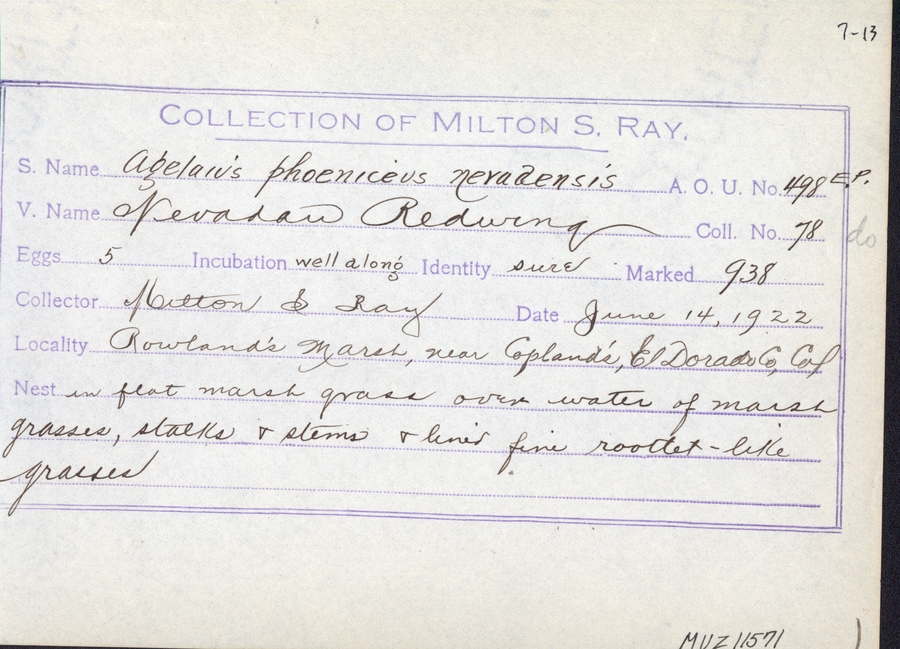 7-13
COLLECTION OF MILTON S. RAY.
S. Name Agelaius phoeniceus nevadensis A. O. U. No. 498 E.P.
V. Name Nevadan Redwing Coll. No. 78 do
Eggs 5 Incubation well along Identity sure Marked 938
Collector Milton S Ray Date June 14, 1922
Locality Rowland's Marsh, near Copland's, El Dorado Co, Cal
Nest in flat marsh grass over water of marsh
grasses, stalks & stems & lined fine rootlet-like
grasses
MVZ 11571